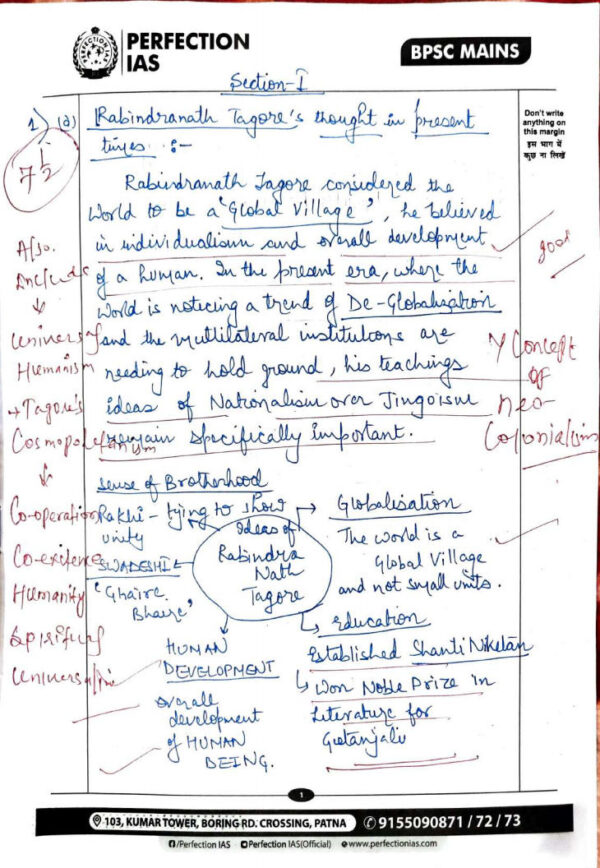 PERFECTION IAS
PERFECTION
IAS
BPSC MAINS
Section-I
1) (a) Rabindranath Tagore's thought in present
times :-
7 1/2
Don't write
anything on
this margin
इस भाग में
कुछ ना लिखें
Rabindranath Tagore considered the
World to be a "Global Village", he believed
in individualism and overall development
of a human. In the present era, where the
world is noticing a trend of De-Globalization
and the multilateral institutions are
needing to hold ground, his teachings
ideas of Nationalism over Jingoism
remain specifically important.
good
Y Concept
of
neo-
Colonialism
Also.
Include
Universal
Humanism
+ Tagore's
Cosmopoletanism
Co-operation
Co-exitence
Humanity
Spiritual
Universalism
Sense of Brotherhood
Rakhi - trying to show
unity
SWADESHI
'Ghaire
Bhaire'
Ideas of
Rabindra
Nath
Tagore
Globalisation
The world is a
Global Village
and not small units.
Education
Established Shanti Niketan
Won Noble Prize in
Literature for
Geetanjali
HUMAN
DEVELOPMENT
Overall
development
of HUMAN
BEING.
1
103, KUMAR TOWER, BORING RD. CROSSING, PATNA 9155090871 / 72 / 73
/Perfection IAS Perfection IAS(Official) www.perfectionias.com